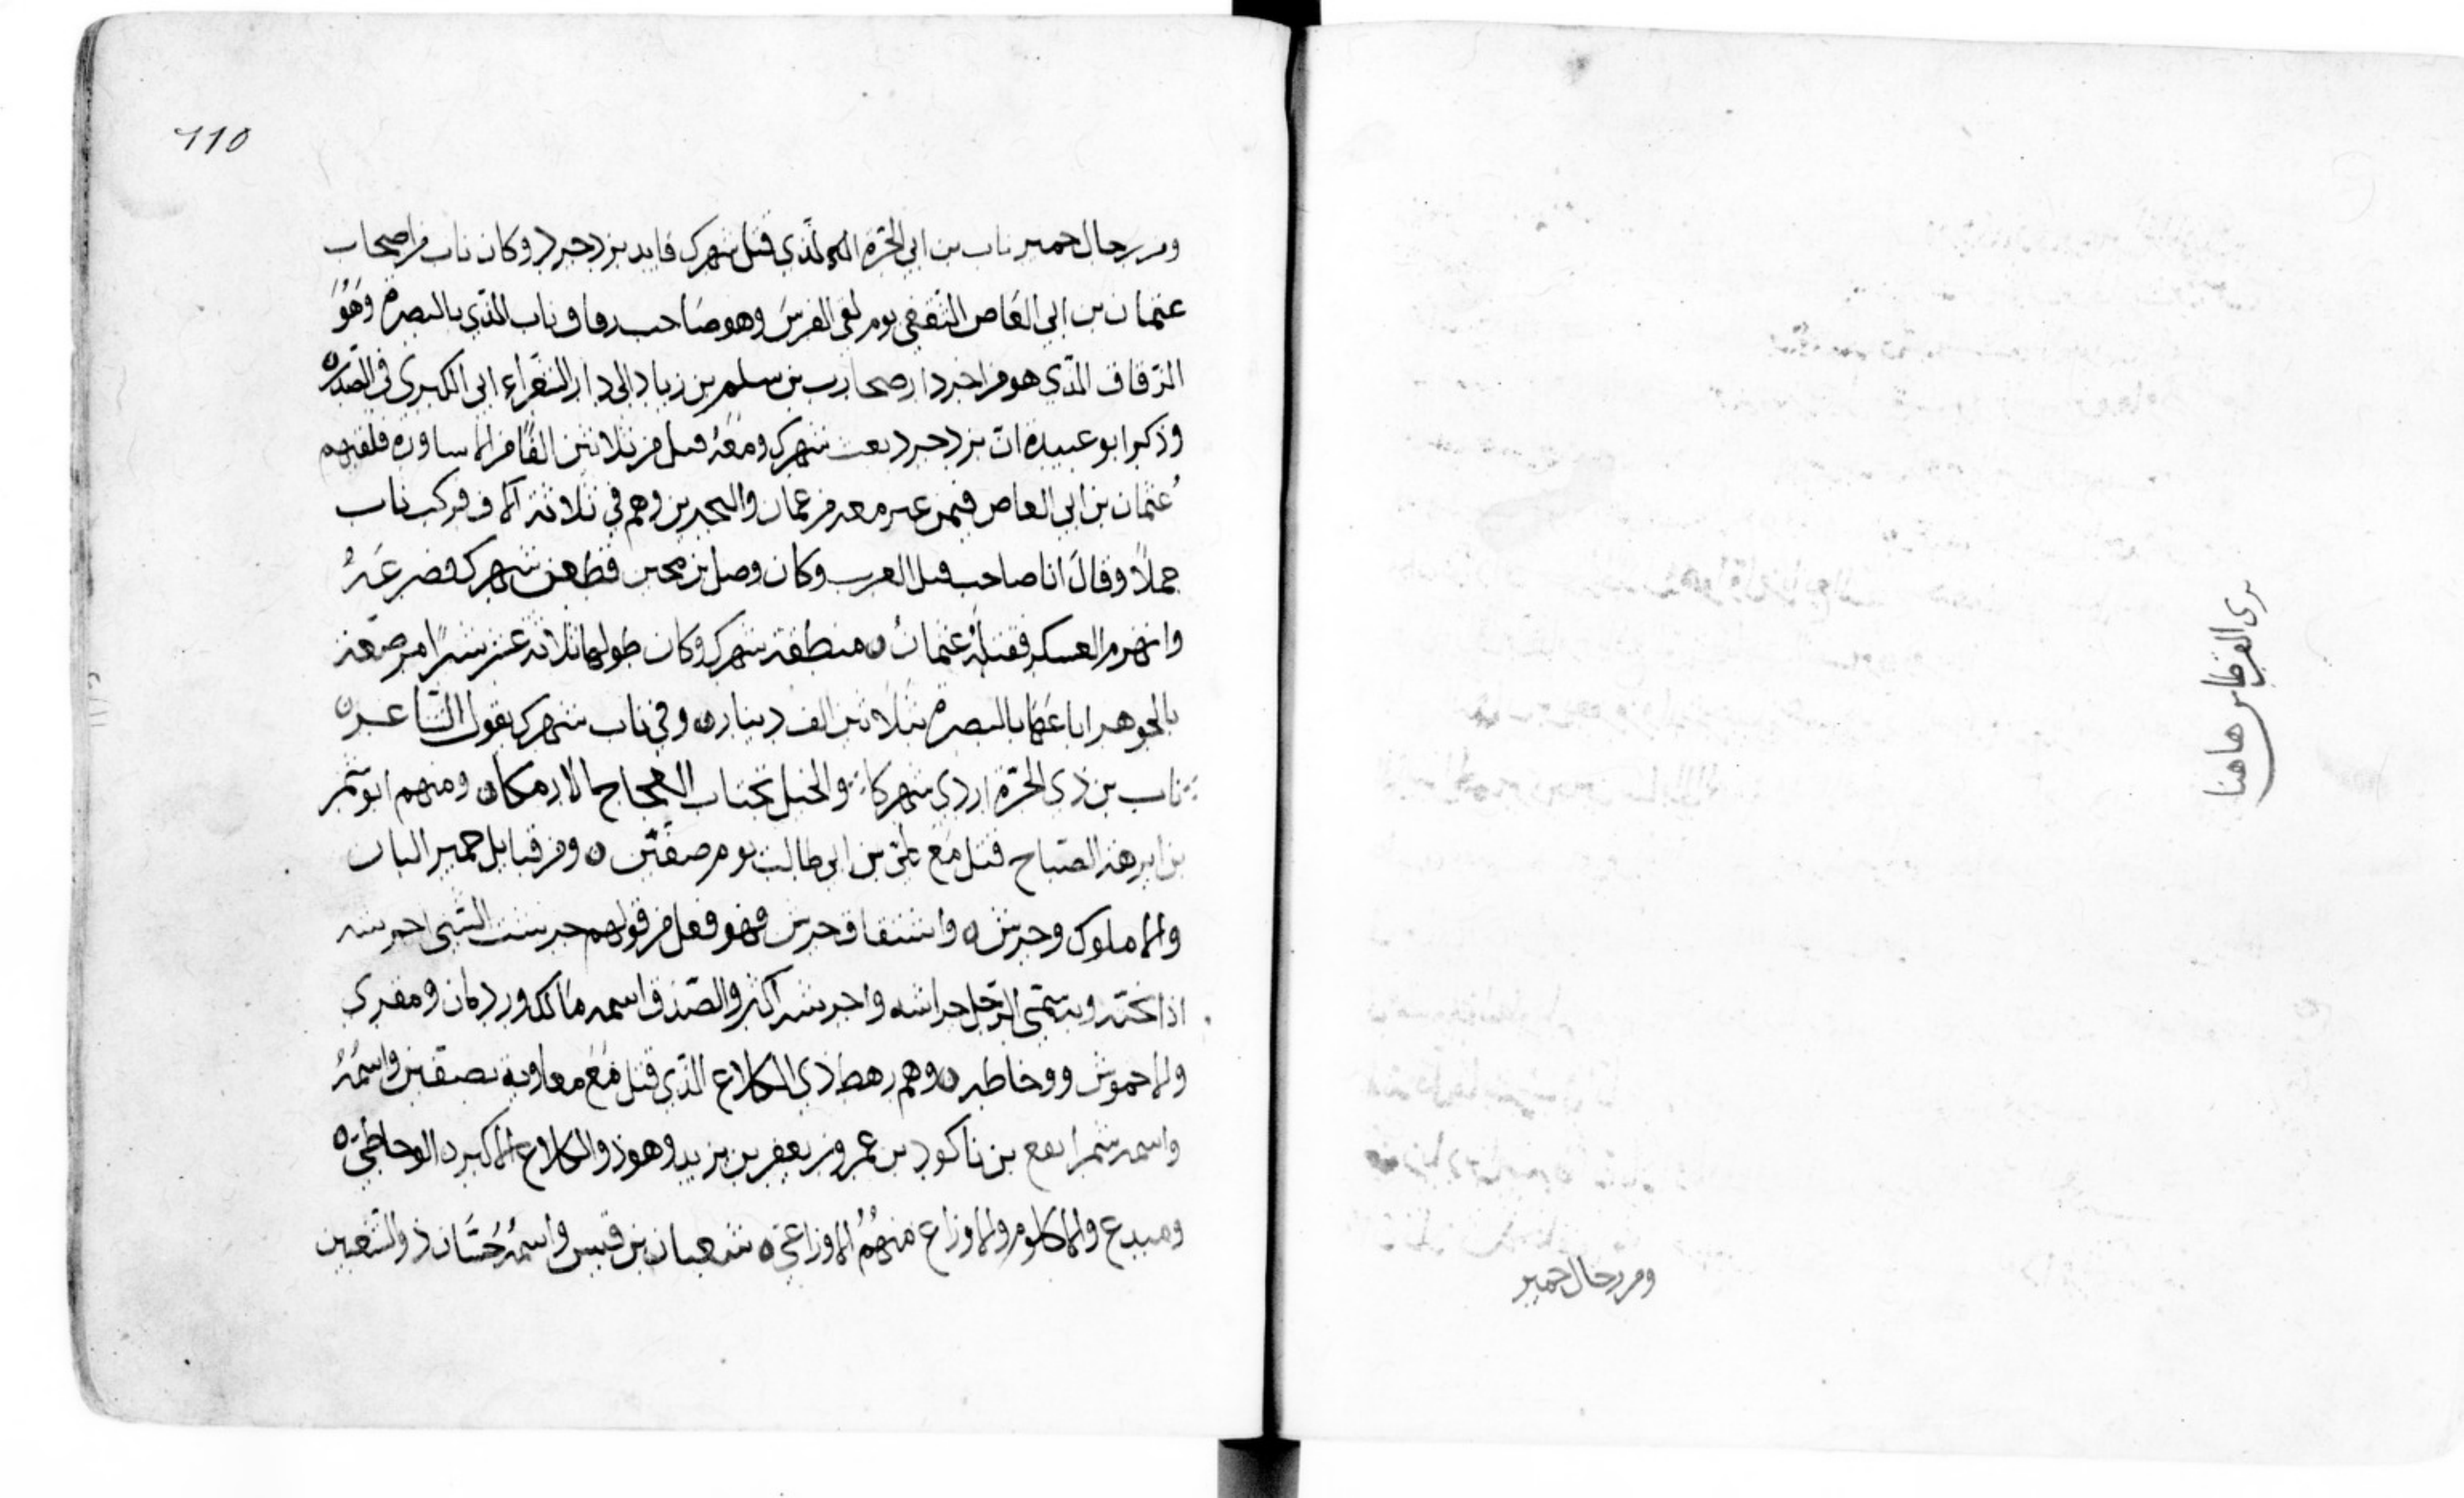 برى القرطاس هاهنا
ومن رجال حمير
110
ومن رجال حمير ناب بن ابي الحرة الذي قتل شهرك قايد يزدجرد وكان ناب من اصحاب
عثمان بن ابي العاص الثقفي يوم لقي الفرس وهو صاحب زقاق ناب الذي بالبصرة وهو
الزقاق الذي هو من اخر دار صحارب بن سلم بن زياد الى دار الشعراء ابي الكهرى في
وذكر ابو عبيدة ان يزدجرد بعث شهرك ومعه قبل من ثلاثين الفا من الاساورة فلقيهم
عثمان بن ابي العاص فيمن عبر معه من عمان والبحرين وهم في ثلاثة آلاف فركب ناب
جملا وقال انا صاحب قبل العرب وكان وصل بن فطعن شهرك فصرعه
وانهزم العسكر فنفله عثمان منطقة شهرك وكان طولها ثلاثة عشر شبرا مرصعة
بالجوهر اباعها بالبصرة بثلاثين الف دينار وفي ناب شهرك يقول الشاعر
ناب بن ذي الحرة اردى شهركا والخيل تجتاب العجاج الارمكا ومنهم ابو شمر
بن ابرهة الصباح قتل مع علي بن ابي طالب يوم صفين ومن قبايل حمير
والاملوك وجرش واشتقاق جرش فهو فعل من قولهم جرشت الشي اجرشه
اذا نحته ويسمى الرجل جراشه واجرشه اكثر والصدف اسمه مالك وردمان ومقرى
والاحموش ووخاطه وهم رهط ذي الكلاع الذي قتل مع معاوية بصفين واسمه
واسمه سميفع بن ناكور بن عمرو بن يعفر بن يزيد وهو ذو الكلاع الاكبر الوحاظي
وميدع والاكلوم والاوزاع منهم الاوزاعي شعبان بن قيس واسمه حسان ذو الشعبين